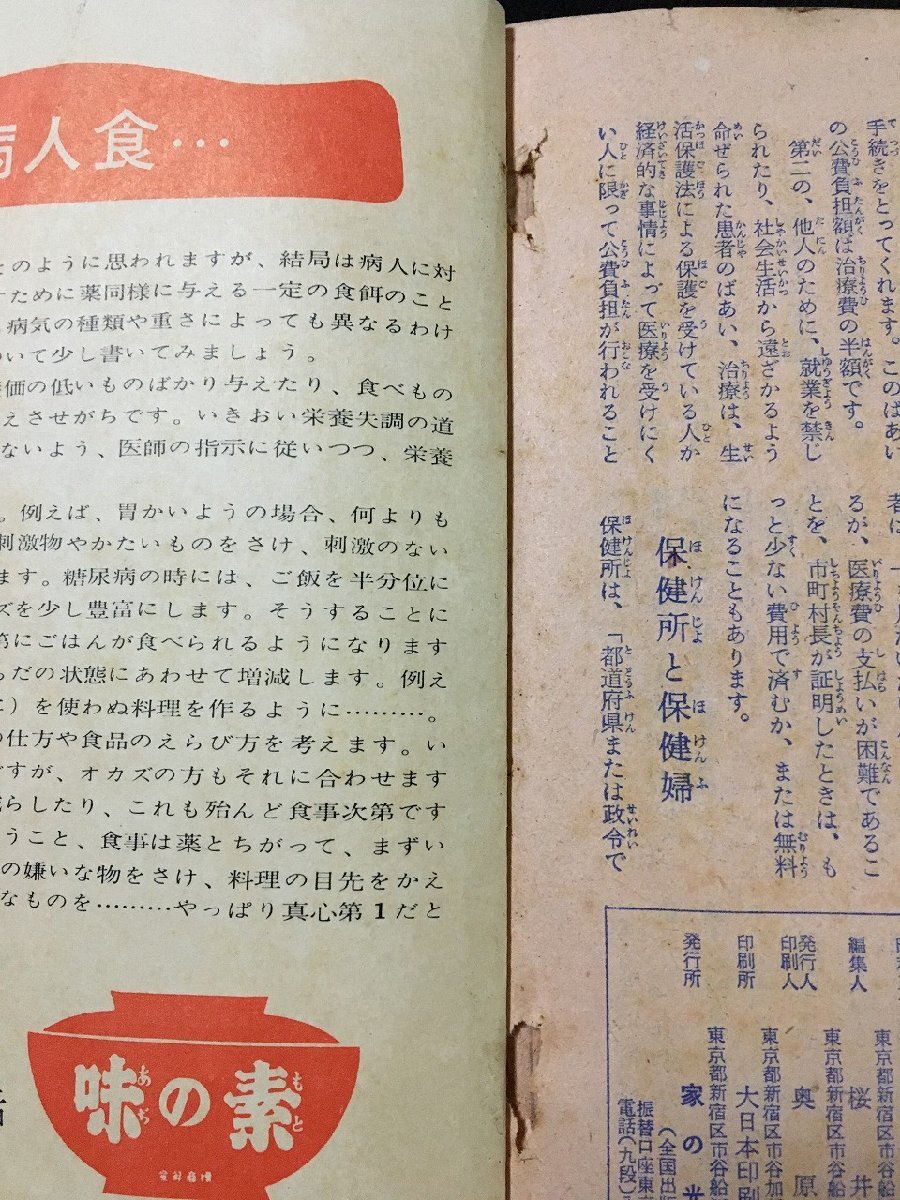 病人食…
このように思われますが、結局は病人に対
ために薬同様に与える一定の食餌のこと
病気の種類や重さによっても異なるわけ
いて少し書いてみましょう。
価の低いものばかり与えたり、食べもの
えさせがちです。いきおい栄養失調の道
ないよう、医師の指示に従いつつ、栄養
。例えば、胃かいようの場合、何よりも
刺激物やかたいものをさけ、刺激のない
ます。糖尿病の時には、ご飯を半分位に
ズを少し豊富にします。そうすることに
第にごはんが食べられるようになります
らだの状態にあわせて増減します。例え
）を使わぬ料理を作るように………。
の仕方や食品のえらび方を考えます。い
ですが、オカズの方もそれに合わせます
減らしたり、これも殆んど食事次第です
うこと、食事は薬とちがって、まずい
の嫌いな物をさけ、料理の目先をかえ
なものを………やっぱり真心第1だと
味の素
あぢ もと
手続きをとってくれます。このばあい
の公費負担額は治療費の半額です。
第二の、他人のために、就業を禁じ
られたり、社会生活から遠ざかるよう
命ぜられた患者のばあい、治療は、生
活保護法による保護を受けている人か
経済的な事情によって医療を受けにく
い人に限って公費負担が行われること
るが、医療費の支払いが困難であるこ
とを、市町村長が証明したときは、も
っと少ない費用で済むか、または無料
になることもあります。
保健所と保健婦
ほけんじよ ほけんふ
保健所は、「都道府県または政令で
東京都新宿区市谷船
編集人 桜井
東京都新宿区市谷船
発行人
印刷人 奥原
東京都新宿区市谷加
印刷所 大日本印刷
東京都新宿区市谷船
発行所 家の光
(全国出版
振替口座東京
電話(九段)